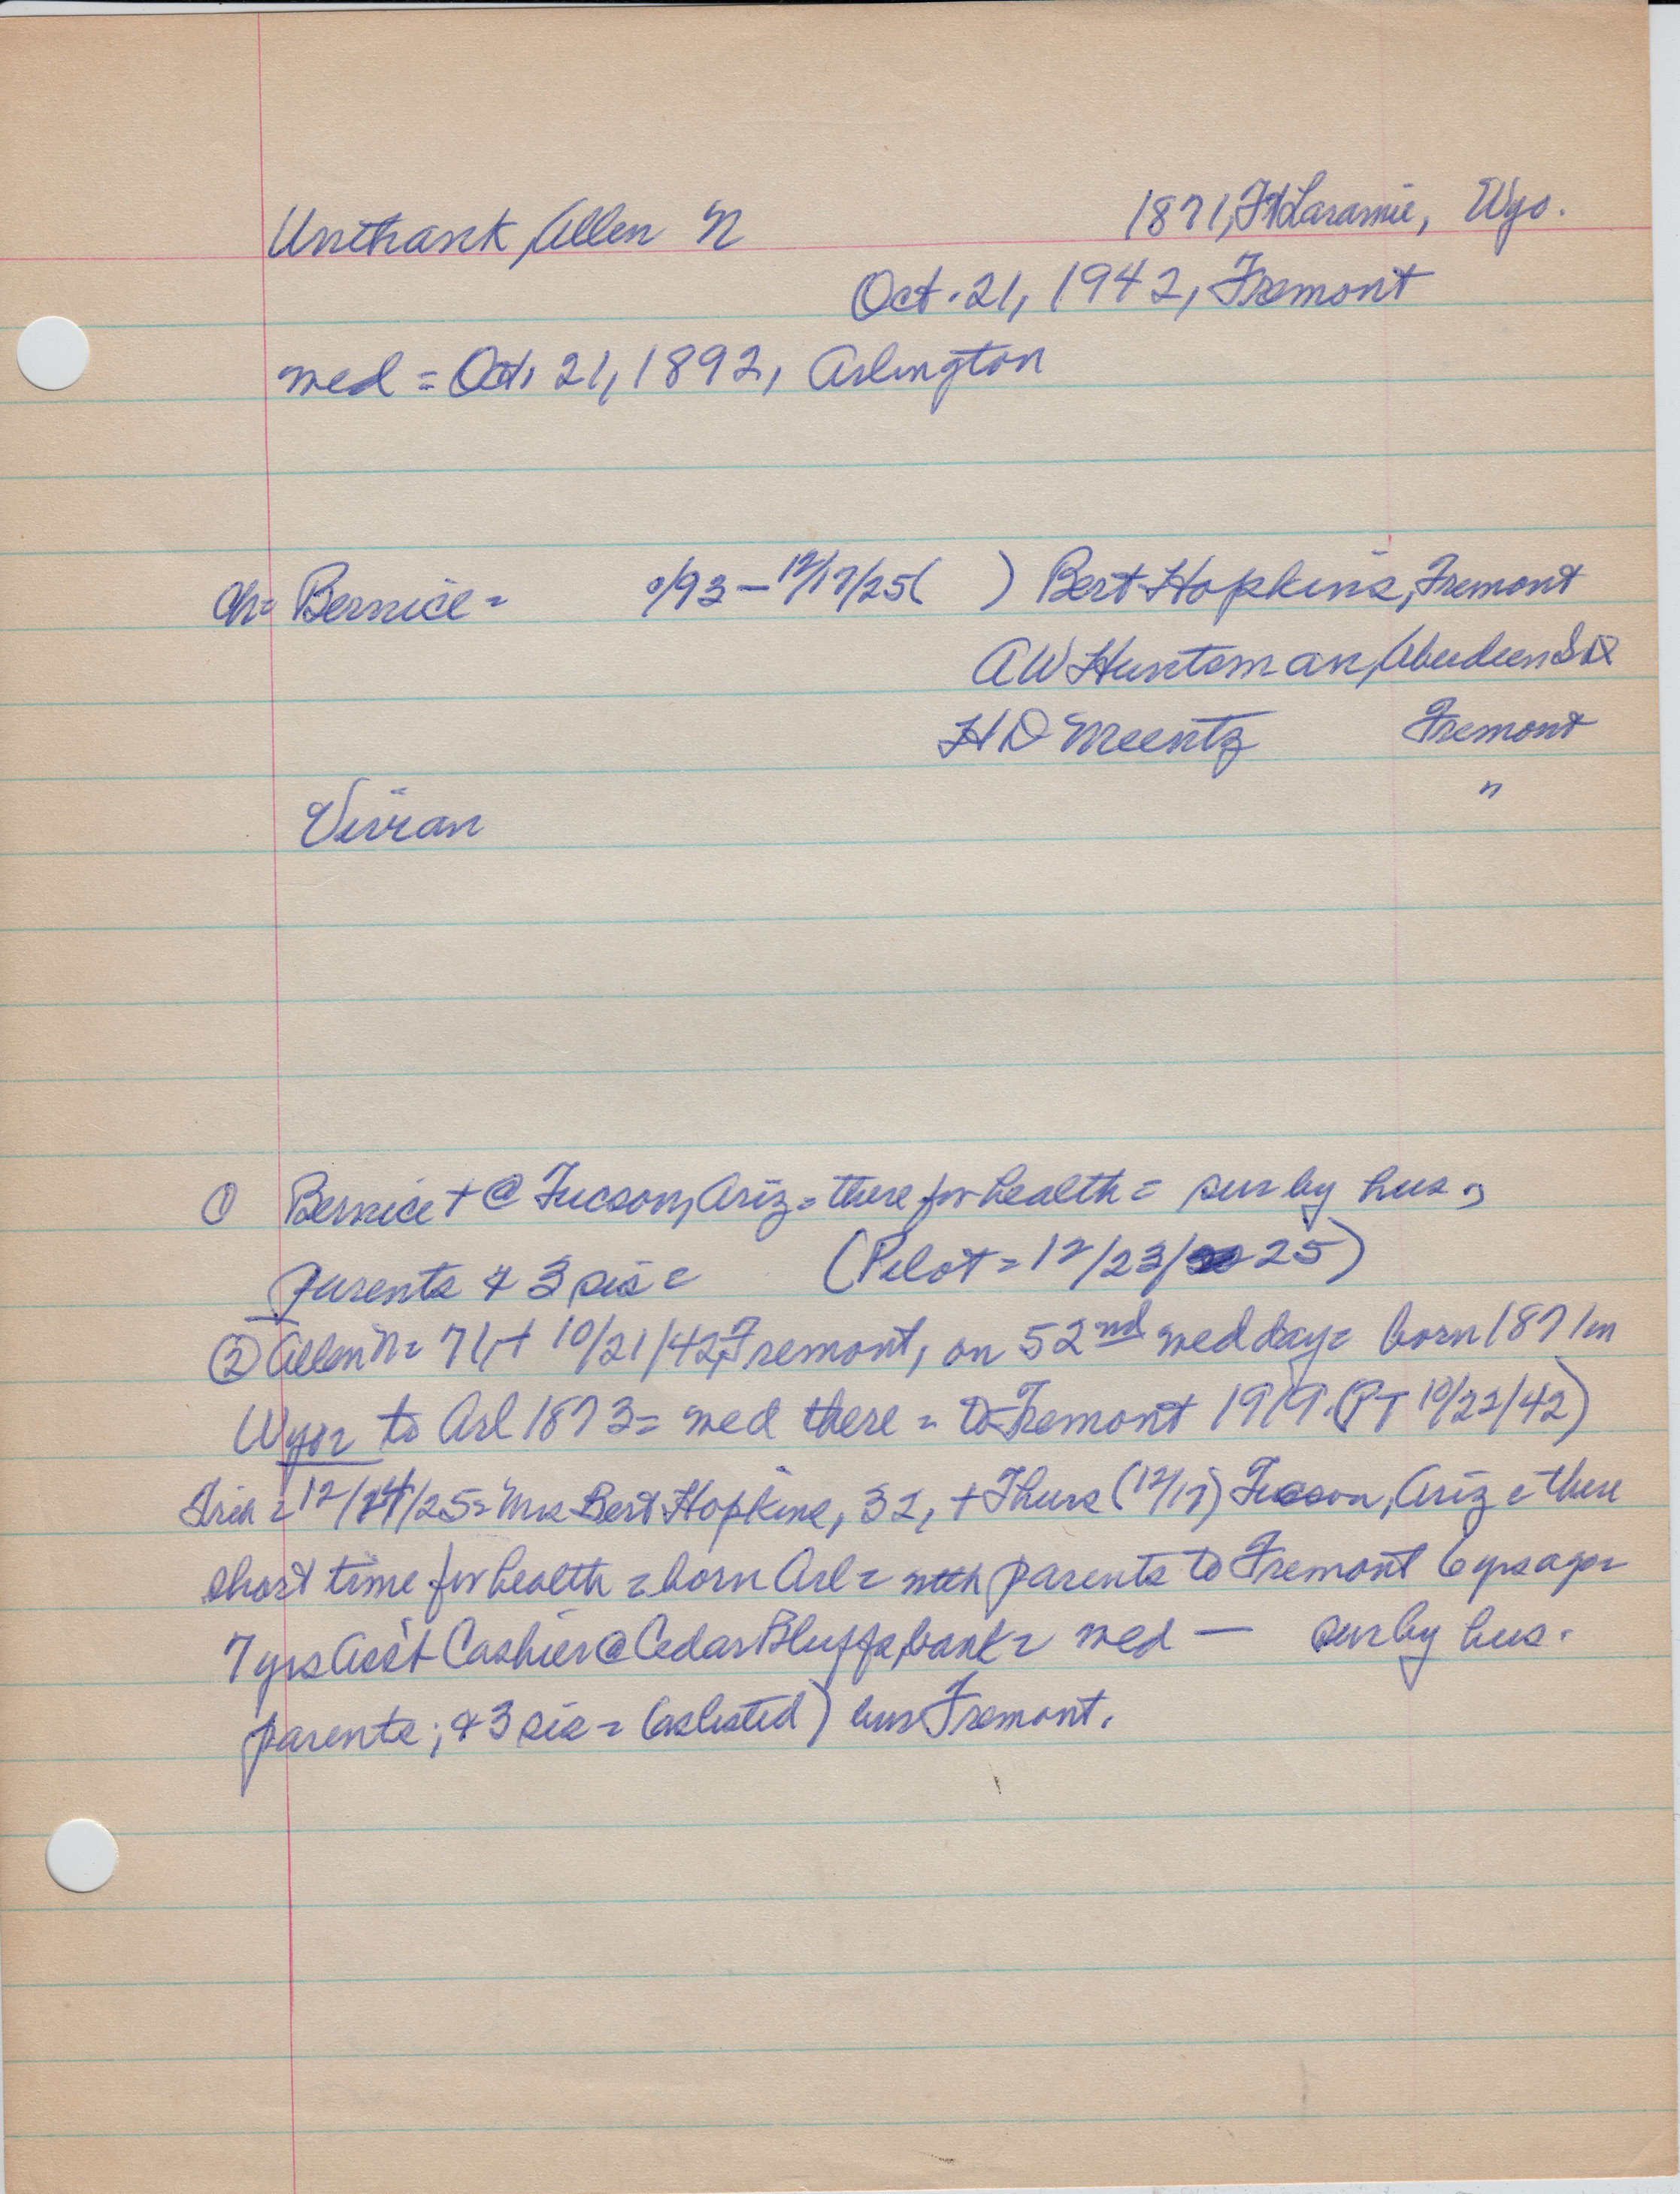 Unthank, Allen N 1871, Ft Laramie, Wyo.
Oct. 21, 1942, Fremont
wed = Oct. 21, 1892, Arlington
Ch = Bernice = /93 - 12/17/25 ( ) Bert Hopkins, Fremont
AW Huntsman, Aberdeen SD
HD Meentz Fremont
Vivian "
① Bernice + @ Tucson, Ariz = there for health = sur by hus,
parents & 3 sis = (Pilot = 12/23/25)
② Allen N = 71, + 10/21/42, Fremont, on 52nd wed day = born 1871 in
Wyo = to Arl 1873 = wed there = to Fremont 1919. (PT 10/22/42)
Trib = 12/24/25 = Mrs Bert Hopkins, 32, + Thurs (12/17) Tucson, Ariz = there
short time for health = born Arl = with parents to Fremont 6 yrs ago =
7 yrs Ass't Cashier @ Cedar Bluffs, bank = wed — sur by hus.
parents; & 3 sis = (as listed) bur Fremont.